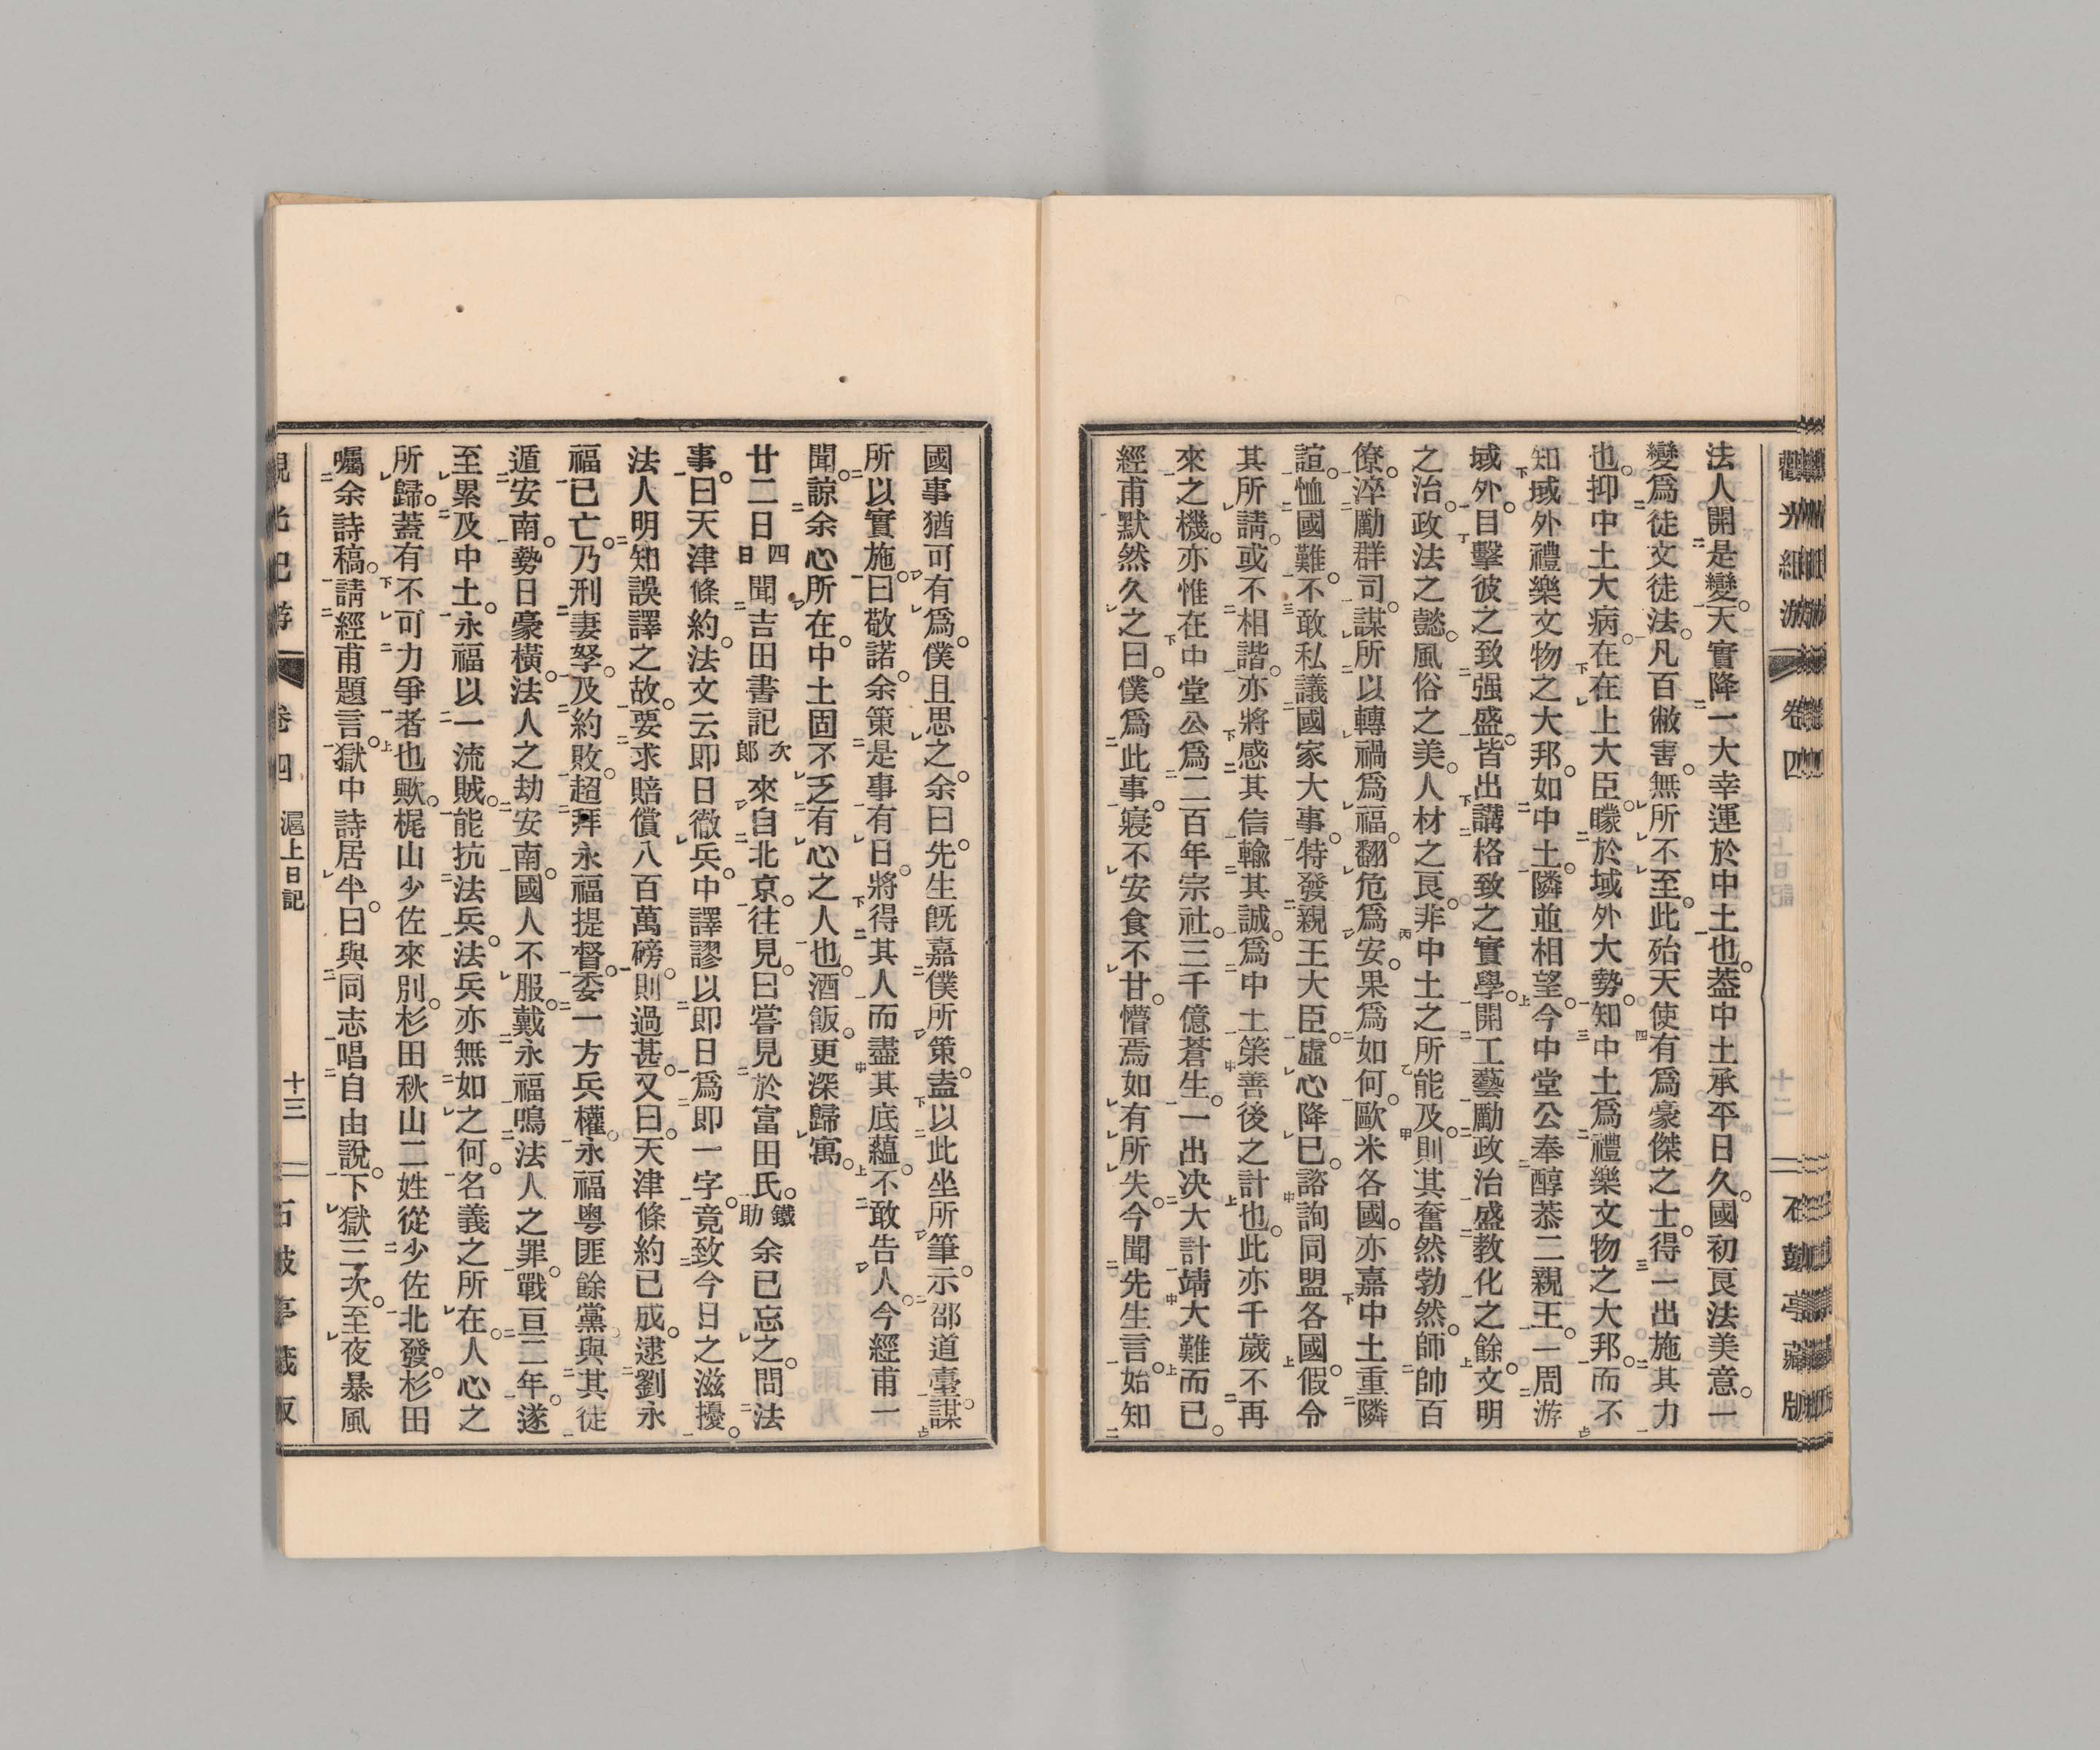 觀光紀游 卷四 石鼓亭藏版
法人開是變。天實降一大幸運於中土也。蓋中土承平日久。國初良法美意。一
變爲徒文徒法。凡百敝害。無所不至。此殆天使有爲豪傑之士。得一出施其力
也。抑中土大病。在在上大臣。矇於域外大勢。知中土爲禮樂文物之大邦。而不
知域外禮樂文物之大邦。如中土。隣並相望。今中堂公奉醇恭二親王。一周游
域外。目擊彼之致强盛。皆出講格致之實學。開工藝。勵政治。盛教化之餘。文明
之治。政法之懿。風俗之美。人材之良。非中土之所能及。則其奮然勃然。師帥百
僚。淬勵群司。謀所以轉禍爲福。翻危爲安。果爲如何。歐米各國。亦嘉中土重隣
誼。恤國難。不敢私議國家大事。特發親王大臣。虛心降已。諮詢同盟各國。假令
其所請。或不相諧。亦將感其信輸其誠。爲中土築善後之計也。此亦千歲不再
來之機。亦惟在中堂公爲二百年宗社。三千億蒼生。一出决大計靖大難而已。
經甫默然久之曰。僕爲此事。寢不安食不甘。懵焉如有所失。今聞先生言。始知
國事猶可有爲。僕且思之。余曰。先生旣嘉僕所策。盍以此坐所筆示。邵道臺。謀
所以實施。曰敬諾。余策是事有日。將得其人而盡其底蘊。不敢告人。今經甫一
聞。諒余心所在。中土固不乏有心之人也。酒飯。更深歸寓。
廿二日四日聞吉田書記次郎來自北京。往見。曰嘗見於富田氏。鐵助余已忘之。問法
事。曰天津條約。法文云即日徹兵。中譯謬以即日爲即一字。竟致今日之滋擾。
法人明知誤譯之故。要求賠償八百萬磅。則過甚。又曰。天津條約已成。逮劉永
福已亡。乃刑妻孥。及約敗。超拜永福提督。委一方兵權。永福粤匪餘黨。與其徒
遁安南。勢日豪橫。法人之劫安南。國人不服。戴永福鳴法人之罪。戰亘二年。遂
至累及中土。永福以一流賊。能抗法兵。法兵亦無如之何。名義之所在。人心之
所歸。蓋有不可力爭者也歟。梶山少佐來別。杉田秋山二姓從少佐北發。杉田
囑余詩稿。請經甫題言。獄中詩居半。曰與同志唱自由說。下獄三次。至夜暴風
卷四 滬上日記 十三